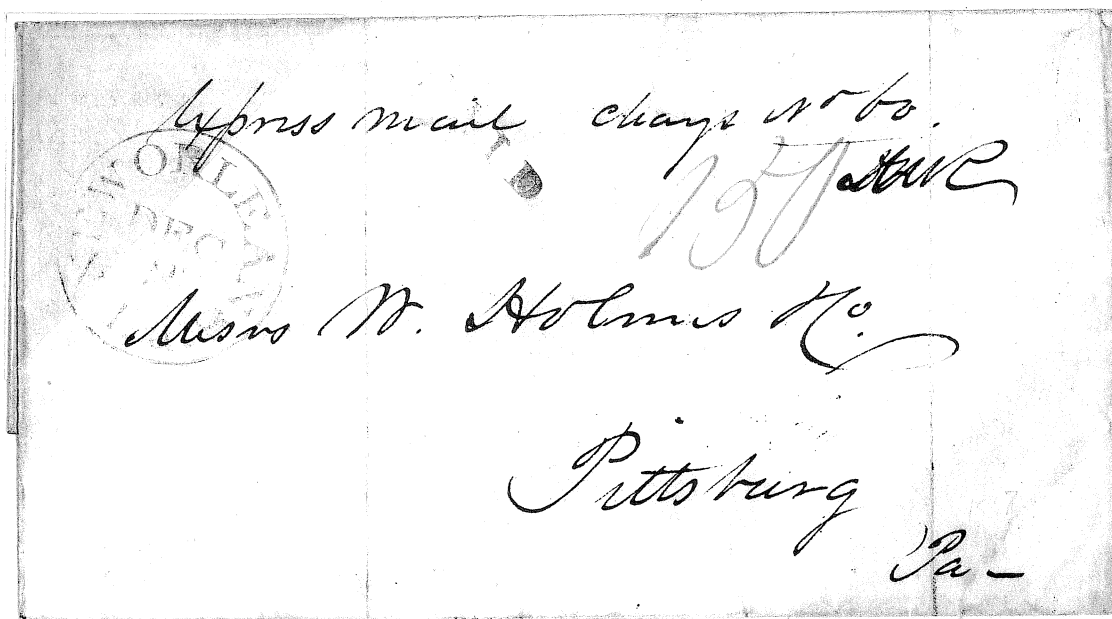 Express mail charge No 60.
150
HWR
NEW ORLEANS
DEC
Messrs W. Holmes & Co.
Pittsburg
Pa —